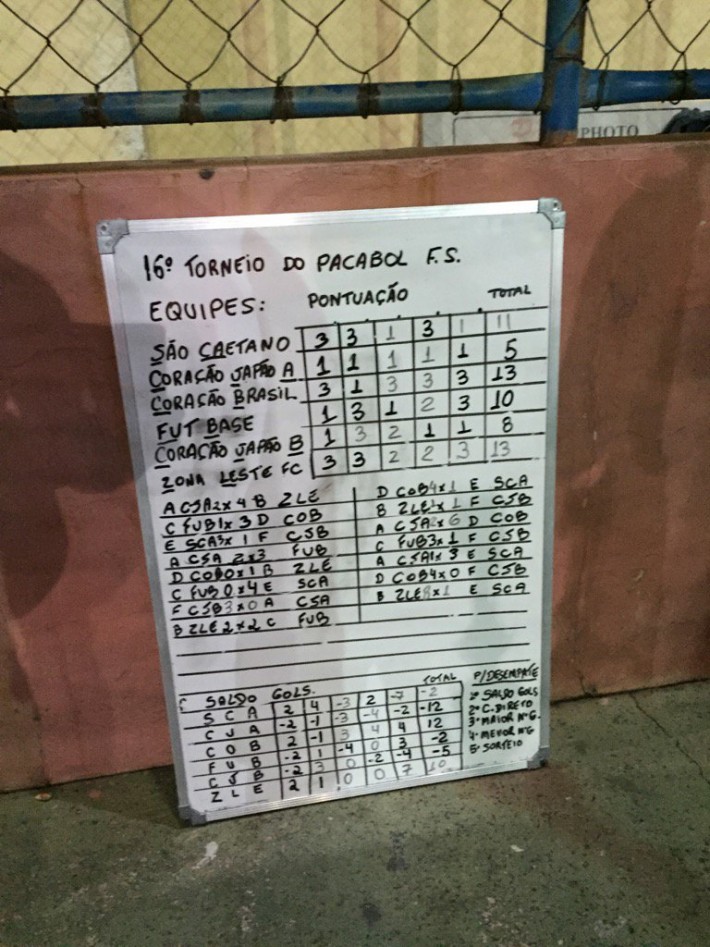 PHOTO
16º TORNEIO DO PACABOL F.S.
EQUIPES: PONTUAÇÃO TOTAL
SÃO CAETANO 3 3 1 3 1 11
CORAÇÃO JAPÃO A 1 1 1 1 1 5
CORAÇÃO BRASIL 3 1 3 3 3 13
FUT BASE 1 3 1 2 3 10
CORAÇÃO JAPÃO B 1 3 2 1 1 8
ZONA LESTE FC 3 3 2 2 3 13
A CJA 2 x 4 B ZLE
C FUB 1 x 3 D COB
E SCA 3 x 1 F CJB
A CJA 2 x 3 FUB
D COB 0 x 1 B ZLE
C FUB 0 x 4 E SCA
F CJB 3 x 0 A CJA
B ZLE 2 x 2 C FUB
D COB 4 x 1 E SCA
B ZLE x 1 F CJB
A CJA 2 x 6 D COB
C FUB 3 x 1 F CJB
A CJA 1 x 3 E SCA
D COB 4 x 0 F CJB
B ZLE 8 x 1 E SCA
SALDO GOLS. TOTAL
S C A 2 4 -3 2 -7 -2
C J A -2 -1 -3 -4 -2 -12
C O B 2 -1 3 4 4 12
F U B -2 1 -4 0 3 -2
C J B -2 3 0 -2 -4 -5
Z L E 2 1 0 0 7 10
P/DESEMPATE
1º SALDO GOLS
2º C. DIRETO
3º MAIOR Nº G.
4º MENOR Nº G
5º SORTEIO